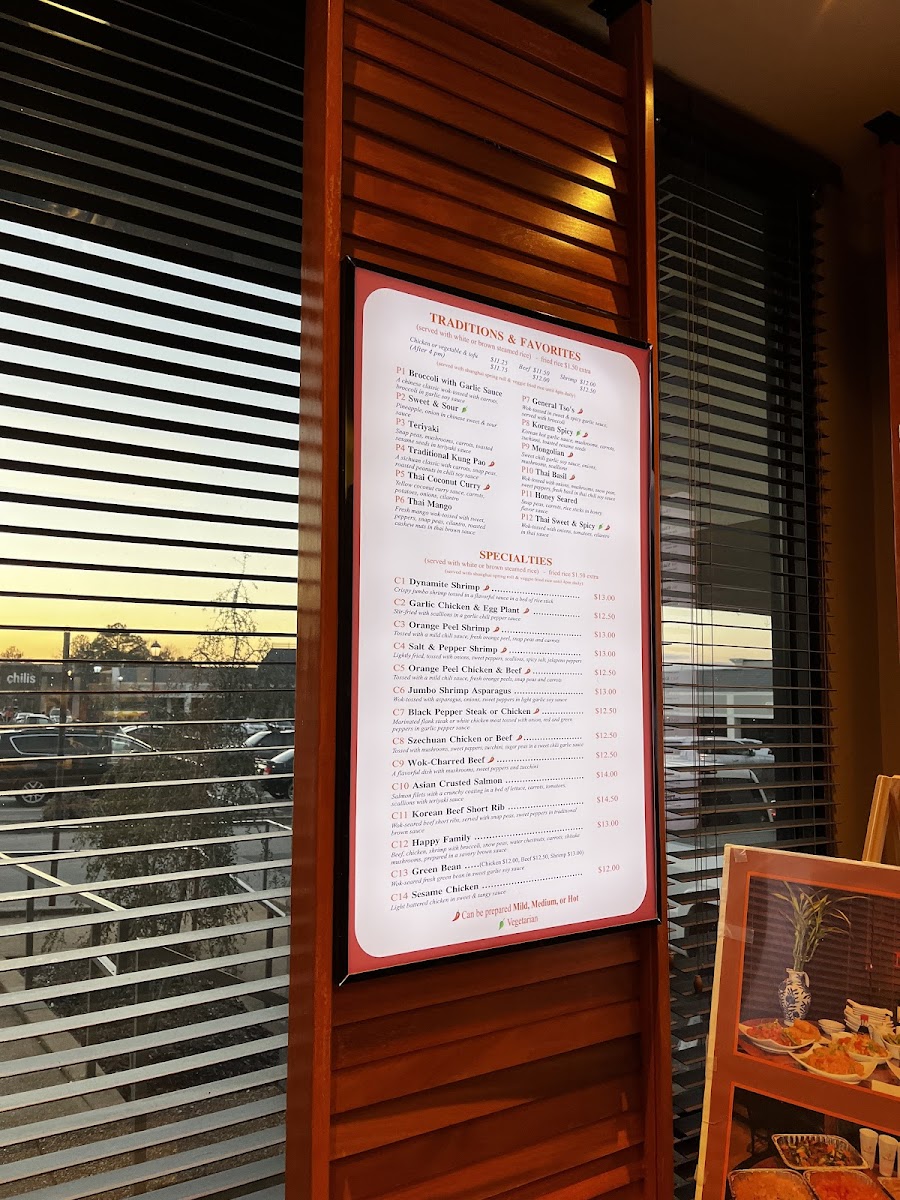 TRADITIONS & FAVORITES
(served with white or brown steamed rice) - fried rice $1.50 extra
Chicken or vegetable & tofu $11.25 Beef $11.50 Shrimp $12.00
(After 4 pm) $11.75 $12.00 $12.50
(served with shanghai spring roll & veggie fried rice until 4pm daily)
P1 Broccoli with Garlic Sauce
A chinese classic wok-tossed with carrots,
broccoli in garlic soy sauce
P2 Sweet & Sour
Pineapple, onion in chinese sweet & sour
sauce
P3 Teriyaki
Snap peas, mushrooms, carrots, toasted
sesame seeds in teriyaki sauce
P4 Traditional Kung Pao
A sichuan classic with carrots, snap peas,
roasted peanuts in chili soy sauce
P5 Thai Coconut Curry
Yellow coconut curry sauce, carrots,
potatoes, onions, cilantro
P6 Thai Mango
Fresh mango wok-tossed with sweet,
peppers, snap peas, cilantro, roasted
cashew nuts in thai brown sauce
P7 General Tso's
Wok-tossed in sweet & spicy garlic sauce,
served with broccoli
P8 Korean Spicy
Korean hot garlic sauce, mushrooms, carrots,
zucchini, toasted sesame seeds
P9 Mongolian
Sweet chili garlic soy sauce, onions,
mushrooms, scallions
P10 Thai Basil
Wok-tossed with onions, mushrooms, snow peas,
sweet peppers, fresh basil in thai chili soy sauce
P11 Honey Seared
Snap peas, carrots, rice sticks in honey
flavor sauce
P12 Thai Sweet & Spicy
Wok-tossed with onions, tomatoes, cilantro
in thai sauce
SPECIALTIES
(served with white or brown steamed rice) - fried rice $1.50 extra
(served with shanghai spring roll & veggie fried rice until 4pm daily)
C1 Dynamite Shrimp $13.00
Crispy jumbo shrimp tossed in a flavorful sauce in a bed of rice stick
C2 Garlic Chicken & Egg Plant $12.50
Stir-fried with scallions in a garlic chili pepper sauce
C3 Orange Peel Shrimp $13.00
Tossed with a mild chili sauce, fresh orange peel, snap peas and carrots
C4 Salt & Pepper Shrimp $13.00
Lightly fried, tossed with onions, sweet peppers, scallions, spicy salt, jalapeno peppers
C5 Orange Peel Chicken & Beef $12.50
Tossed with a mild chili sauce, fresh orange peels, snap peas and carrots
C6 Jumbo Shrimp Asparagus $13.00
Wok-tossed with asparagus, onions, sweet peppers in light garlic soy sauce
C7 Black Pepper Steak or Chicken $12.50
Marinated flank steak or white chicken meat tossed with onion, red and green
peppers in garlic pepper sauce
C8 Szechuan Chicken or Beef $12.50
Tossed with mushrooms, sweet peppers, zucchini, sugar peas in a sweet chili garlic sauce
C9 Wok-Charred Beef $12.50
A flavorful dish with mushrooms, sweet peppers and zucchini
C10 Asian Crusted Salmon $14.00
Salmon filets with a crunchy coating in a bed of lettuce, carrots, tomatoes,
scallions with teriyaki sauce
C11 Korean Beef Short Rib $14.50
Wok-seared beef short ribs, served with snap peas, sweet peppers in traditional
brown sauce
C12 Happy Family $13.00
Beef, chicken, shrimp with broccoli, snow peas, water chestnuts, carrots, shitake
mushrooms, prepared in a savory brown sauce
C13 Green Bean .....(Chicken $12.00, Beef $12.50, Shrimp $13.00)
Wok-seared fresh green bean in sweet garlic soy sauce
C14 Sesame Chicken $12.00
Light battered chicken in sweet & tangy sauce
Can be prepared Mild, Medium, or Hot
Vegetarian
chilis